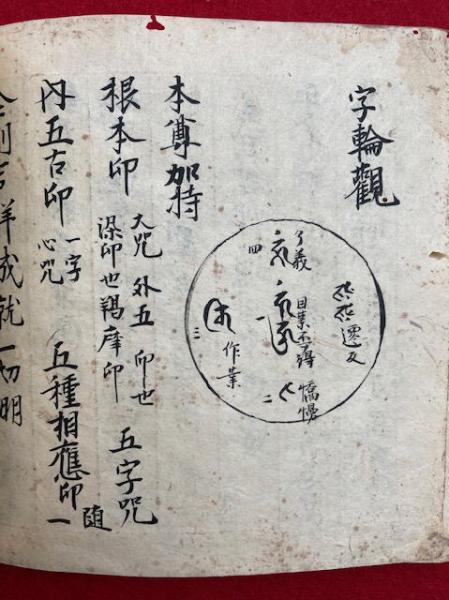 字輪觀
憍慢
二
因業不得
了義
四
作業
三
本尊加持
根本印 大咒 外五印也 深印也羯摩印 五字咒
内五古印 一字心咒 五種相應印一 随
吉祥成就一切明